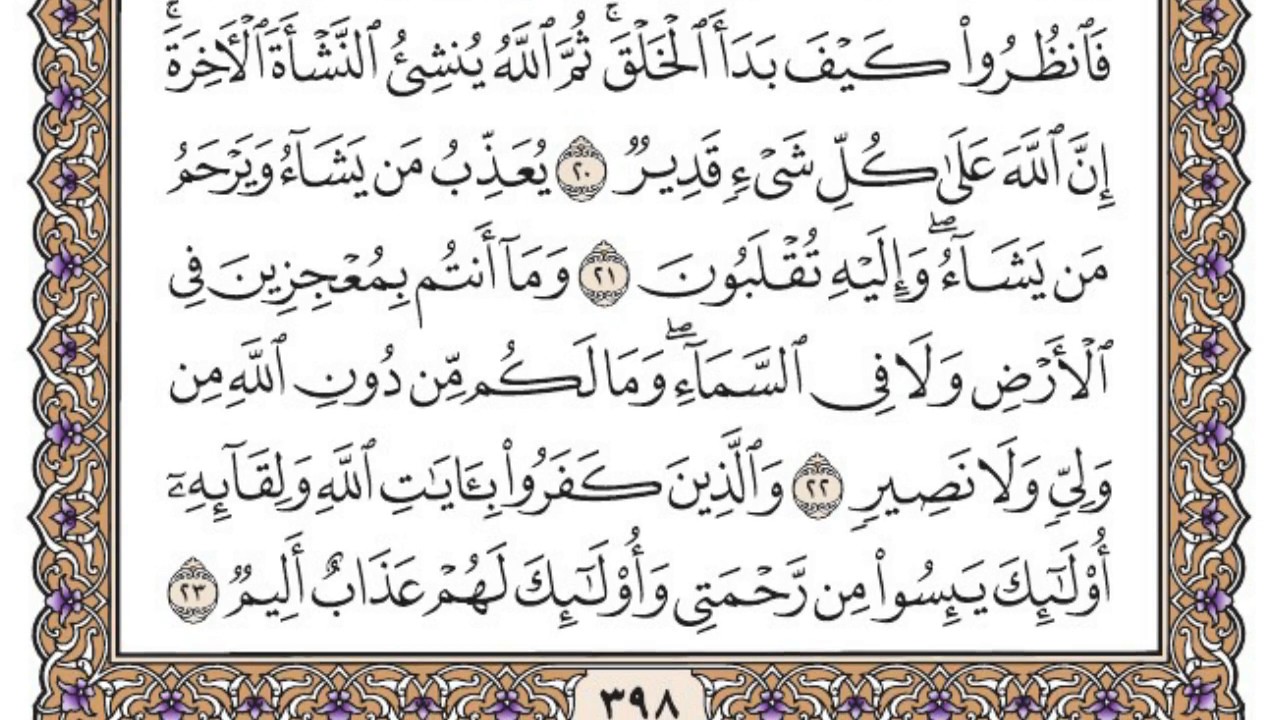 فَٱنظُرُوا۟ كَيْفَ بَدَأَ ٱلْخَلْقَ ۚ ثُمَّ ٱللَّهُ يُنشِئُ ٱلنَّشْأَةَ ٱلْـَٔاخِرَةَ ۚ
إِنَّ ٱللَّهَ عَلَىٰ كُلِّ شَىْءٍ قَدِيرٌ ٢٠ يُعَذِّبُ مَن يَشَآءُ وَيَرْحَمُ
مَن يَشَآءُ ۖ وَإِلَيْهِ تُقْلَبُونَ ٢١ وَمَآ أَنتُم بِمُعْجِزِينَ فِى
ٱلْأَرْضِ وَلَا فِى ٱلسَّمَآءِ ۖ وَمَا لَكُم مِّن دُونِ ٱللَّهِ مِن
وَلِىٍّ وَلَا نَصِيرٍ ٢٢ وَٱلَّذِينَ كَفَرُوا۟ بِـَٔايَـٰتِ ٱللَّهِ وَلِقَآئِهِۦٓ
أُو۟لَـٰٓئِكَ يَئِسُوا۟ مِن رَّحْمَتِى وَأُو۟لَـٰٓئِكَ لَهُمْ عَذَابٌ أَلِيمٌ ٢٣
٣٩٨